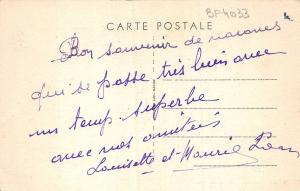 BF4033
CARTE POSTALE
Bon souvenir de vacances
qui se passe très bien avec
un temps superbe
avec nos amitiés
Louisette et Maurice